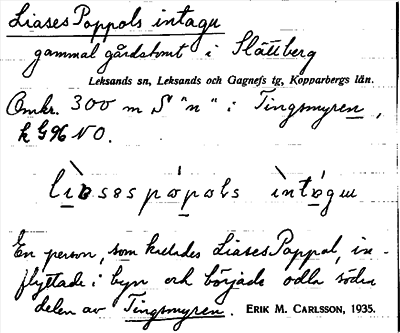 Liases Poppols intagu
gammal gårdstomt i Slättberg
Leksands sn, Leksands och Gagnefs tg, Kopparbergs län.
Omkr. 300 m S "n" i Tingsmyren,
k G96 NO.
En person, som kallades Liases Poppol, in-
flyttade i byn och började odla södra
delen av Tingsmyren. ERIK M. CARLSSON, 1935.